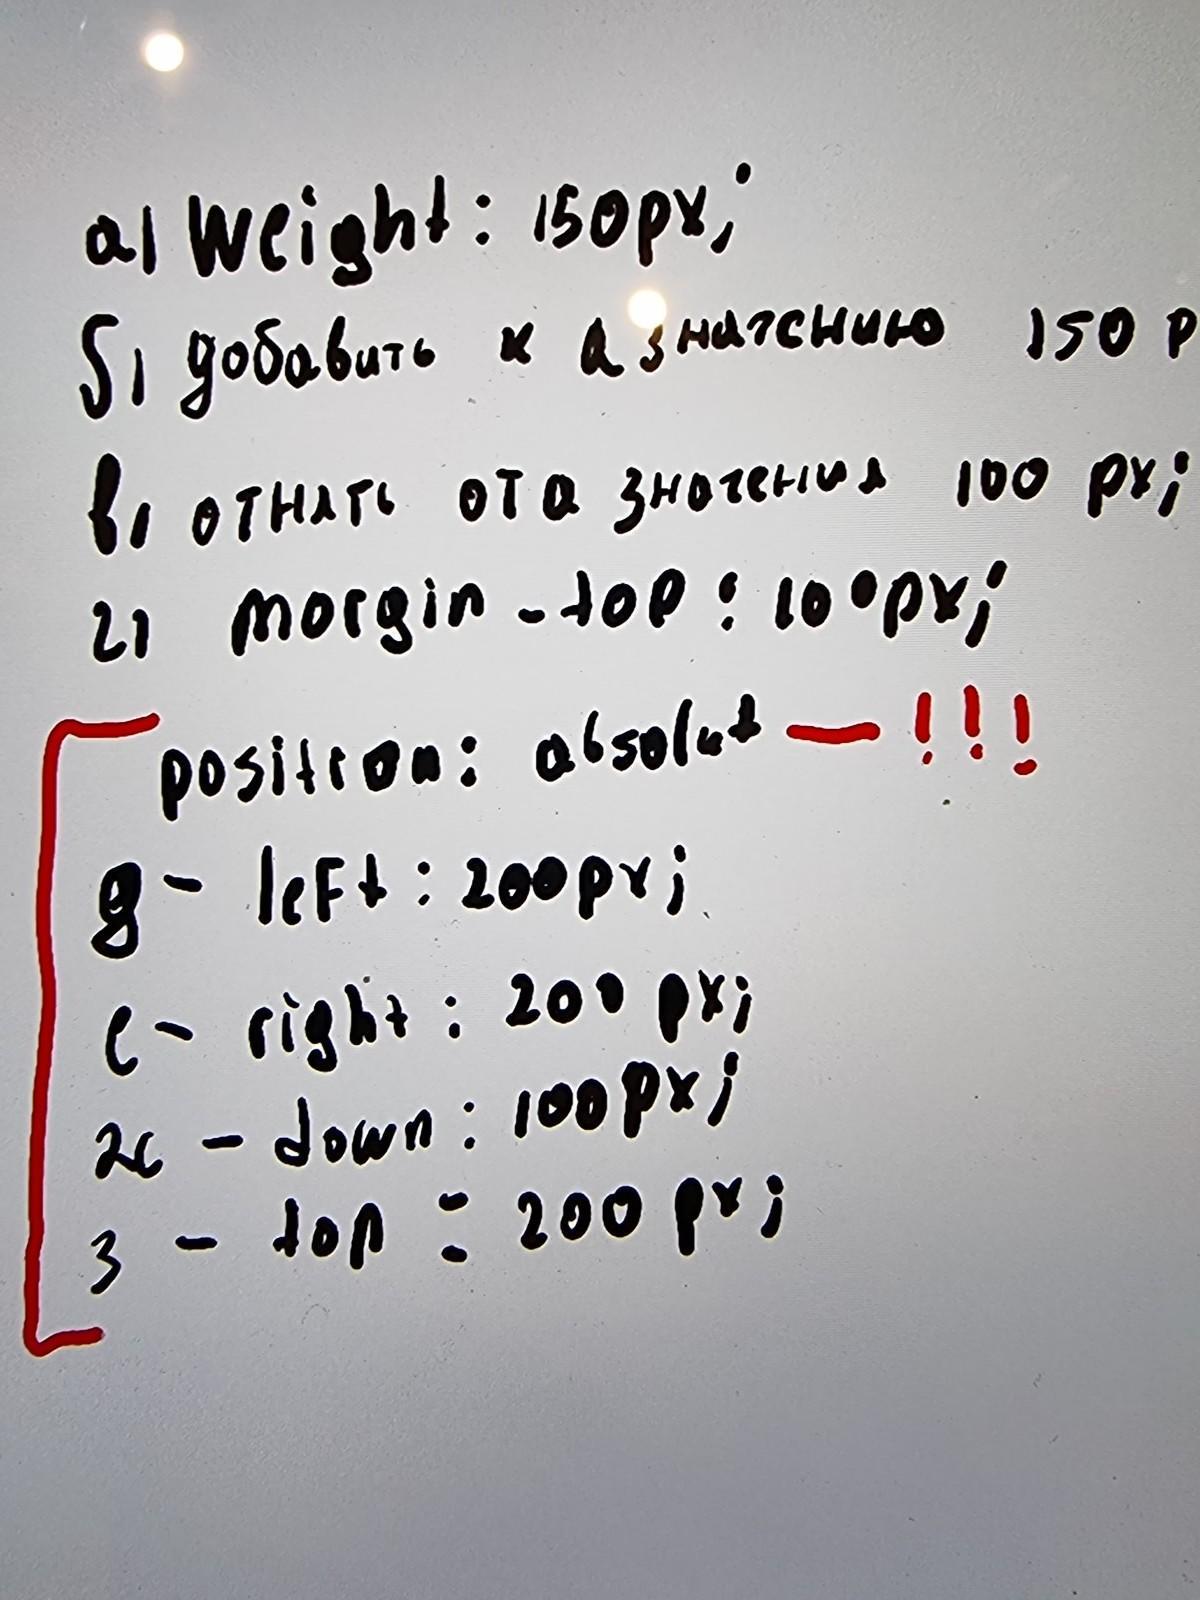 а) Weight: 150px;
б) добавить к а значению 150 p
в) отнять от а значения 100 px;
г) margin-top: 100px;
position: absolut — !!!
g - left: 200px;
е - right: 200 px;
ж - down: 100px;
з - top: 200 px;